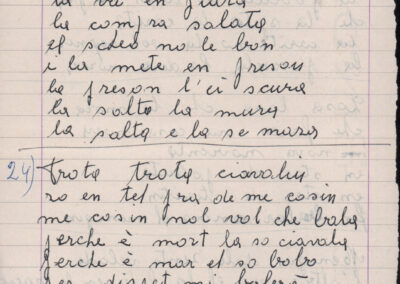 la va in piasa
la compra salata
el scheo no le bon
i la mete en preson
la preson l'è scura
la salta la mura
la salta e la se maza
24) Trota trota cavalin
ro en tel pra de me cosin
me cosin nol vol che bala
perche è mort la so cavala
perche è mor el so bobo
disset mi balerò